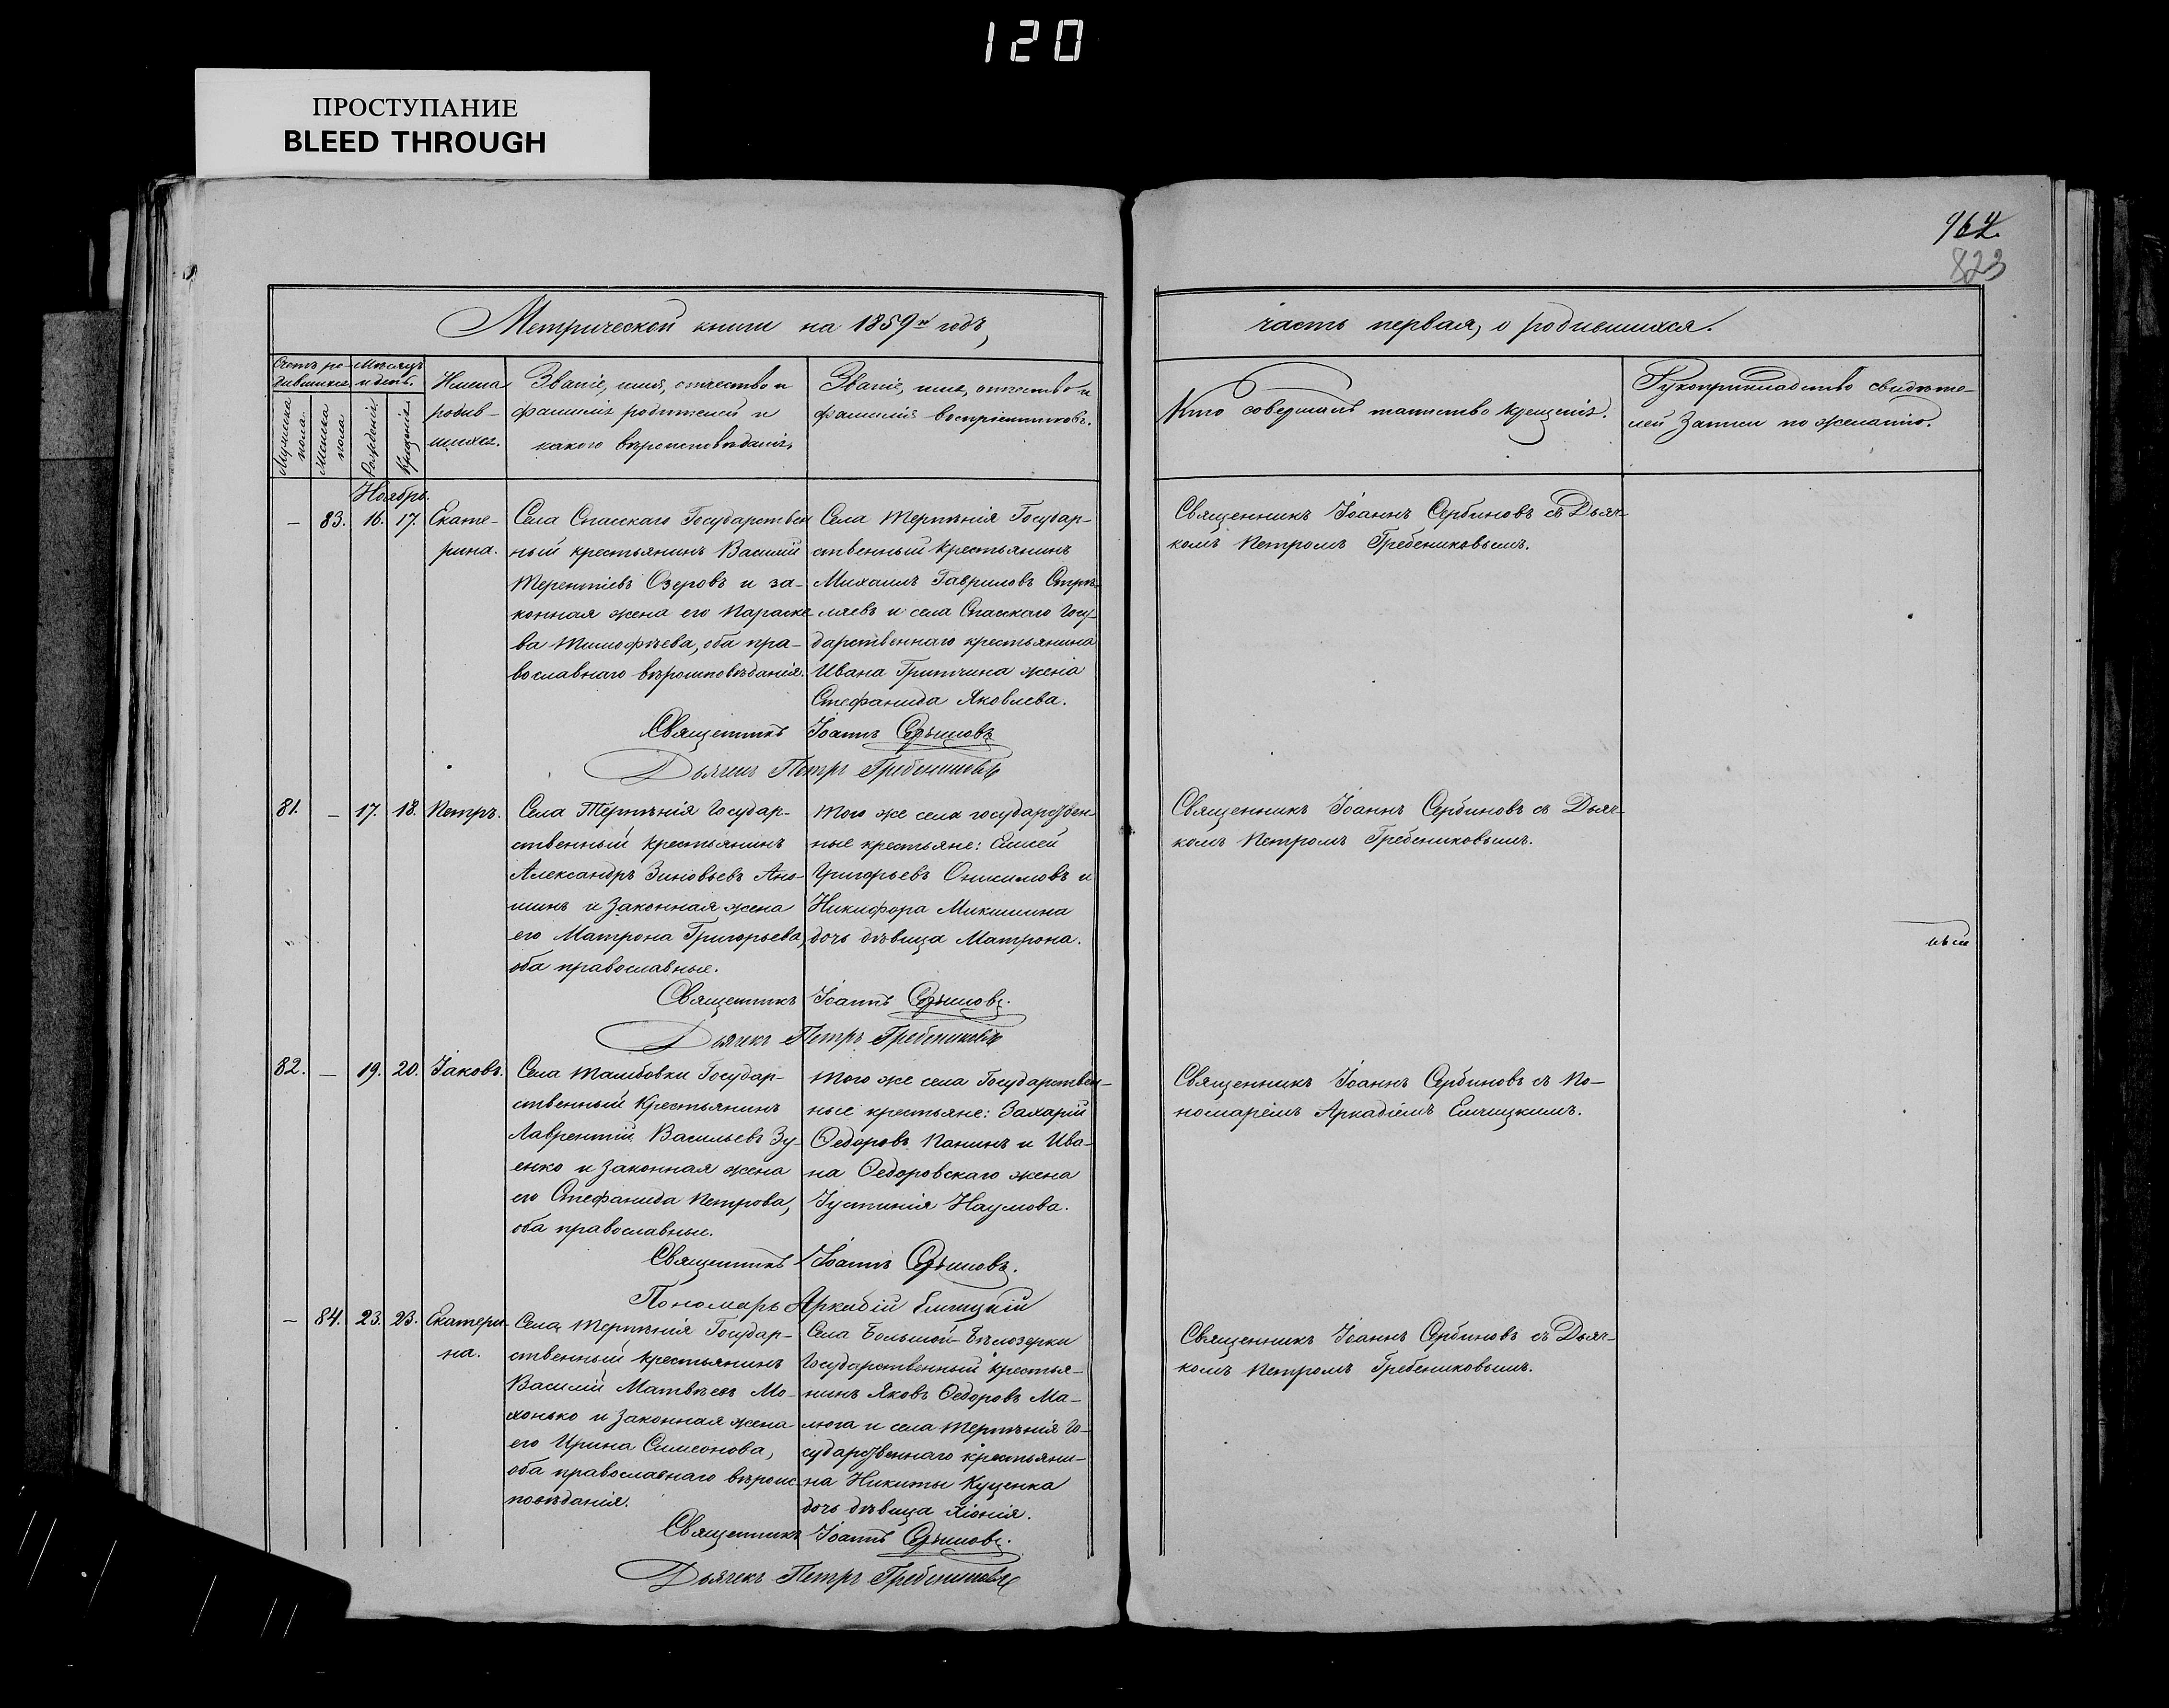 120
ПРОСТУПАНИЕ
BLEED THROUGH
964.
823
Метрической книги на 1859й годъ,
часть первая, о родившихся.
Счетъ ро-
дившихся
Мѣсяцъ
и день.
Мужеска
пола.
Женска
пола.
Рожденія
Крещенія
Имена
родив-
шихся.
Званіе, имя, отчество и
фамилія родителей и
какого вѣроисповѣданія,
Званіе, имя, отчество и
фамилія воспріемниковъ.
Кто совершалъ таинство крещенія.
Рукоприкладство свидѣте-
лей записи по желанію.
Ноябрь.
– 83. 16. 17.
Екате-
рина.
Села Спасскаго Государствен
ный крестьянинъ Василій
Терентіевъ Озеровъ и за-
конная жена его Параске
ва Тимофѣева, оба пра-
вославнаго вѣроисповѣданія.
Села Терпѣнія Государ-
ственный крестьянинъ
Михаилъ Гавриловъ Стрѣ-
ляевъ и села Спасскаго Госу-
дарственнаго крестьянина
Ивана Гритчина жена
Стефанида Яковлева.
Священникъ Іоаннъ Сербиновъ съ Дьяч-
комъ Петромъ Гребениковымъ.
Священникъ Іоаннъ Сербиновъ
Дьячекъ Петръ Гребениковъ
81. – 17. 18. Петръ.
Села Терпѣнія Государ-
ственный крестьянинъ
Александръ Зиновьевъ Ано-
шинъ и законная жена
его Матрона Григорьева,
оба православные.
Того же села государствен-
ные крестьяне: Елисей
Григорьевъ Онисимовъ и
Никифора Микишина
дочь дѣвица Матрона.
Священникъ Іоаннъ Сербиновъ съ Дьяч-
комъ Петромъ Гребениковымъ.
Священникъ Іоаннъ Сербиновъ.
Дьячекъ Петръ Гребениковъ
82. – 19. 20. Іаковъ.
Села Тамбовки Государ-
ственный крестьянинъ
Лаврентій Васильевъ Зу-
енко и законная жена
его Стефанида Петрова,
оба православные.
Того же села Государствен-
ные крестьяне: Захарій
Ѳедоровъ Панинъ и Ива-
на Ѳедоровскаго жена
Іустинія Наумова.
Священникъ Іоаннъ Сербиновъ съ По-
номаремъ Аркадіемъ Елчицкимъ.
Священникъ Іоаннъ Сербиновъ.
Пономарь Аркадій Елчицкій
– 84. 23. 23.
Екатери-
на.
Села Терпѣнія Государ-
ственный крестьянинъ
Василій Матвѣевъ Мо-
хонько и законная жена
его Ирина Симеонова,
оба православнаго вѣроис-
повѣданія.
Села Большой-Бѣлозерки
Государственный крестья-
нинъ Яковъ Ѳедоровъ Ма-
люга и села Терпѣнія Го-
сударственнаго крестьяни-
на Никиты Куценка
дочь дѣвица Хіонія.
Священникъ Іоаннъ Сербиновъ съ Дьяч-
комъ Петромъ Гребениковымъ.
Священникъ Іоаннъ Сербиновъ.
Дьячекъ Петръ Гребениковъ